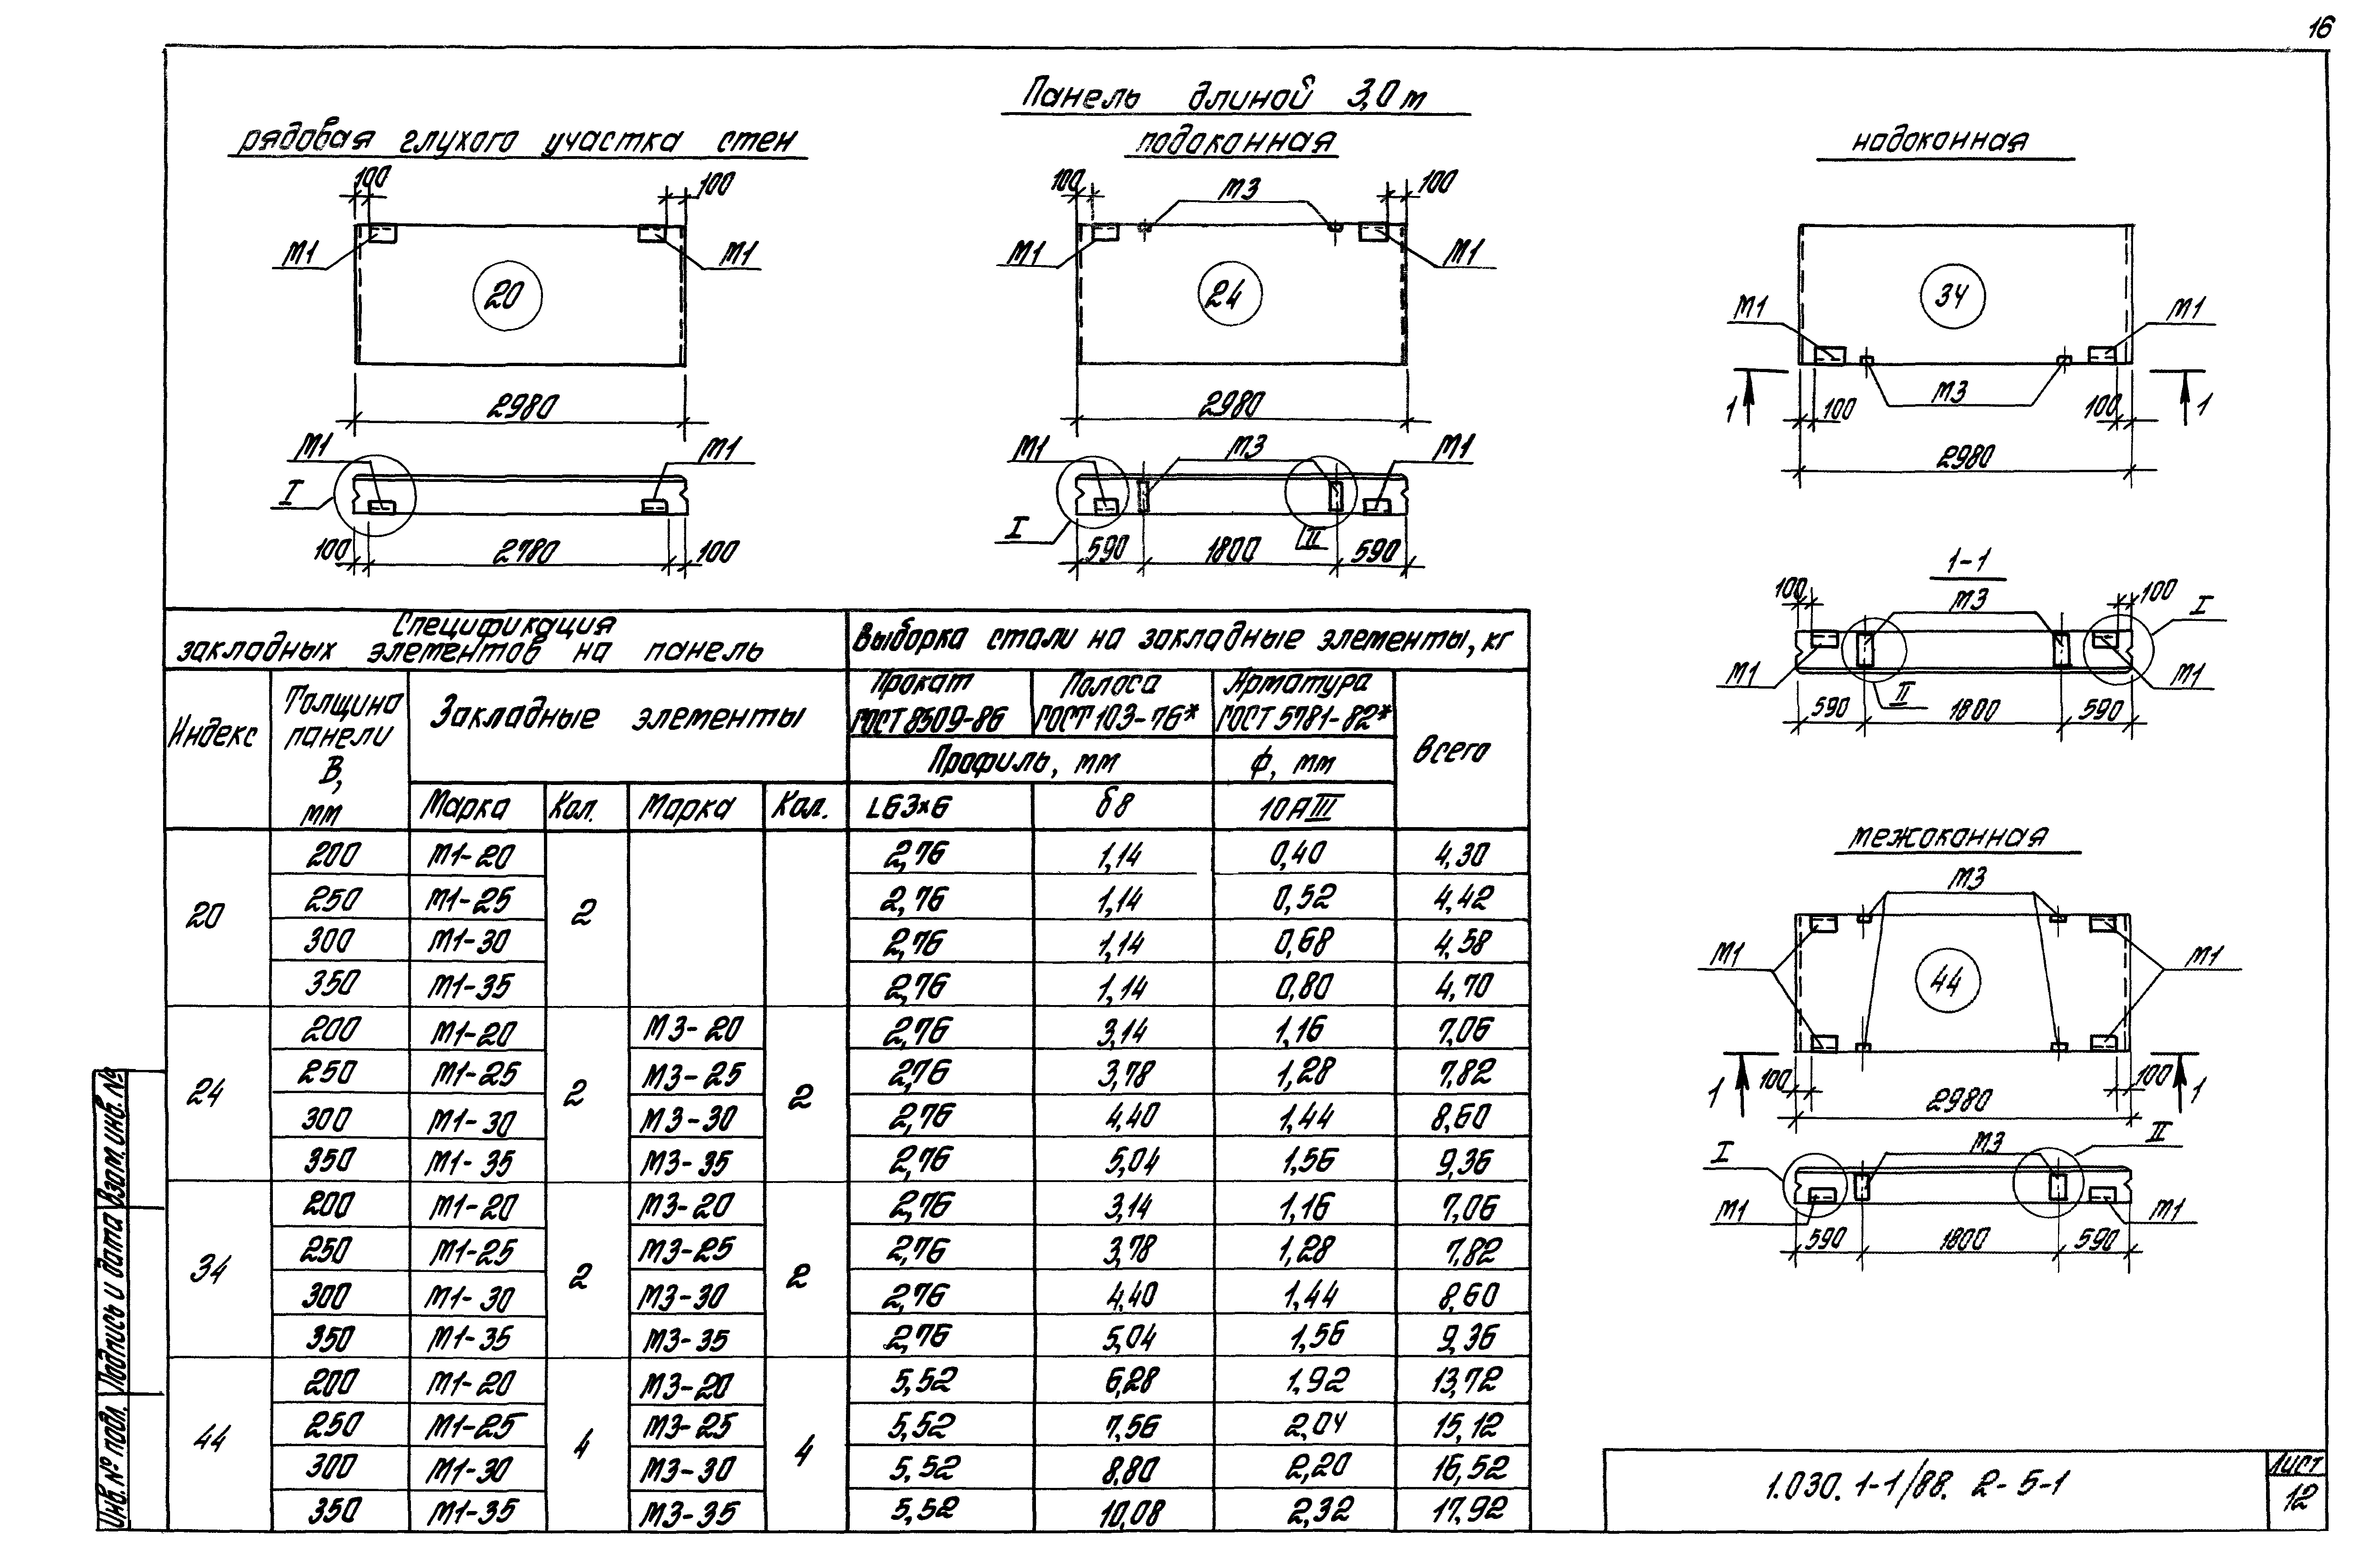 16
Панель длиной 3,0 м
рядовая глухого участка стен
подоконная
надоконная
100 100
М1 М1
20
2980
М1 М1
I
100 2780 100
100 М3 100
М1 М1
24
2980
М1 М3 М1
I II
590 1800 590
34
М1 М1
М3
1 100 100 1
2980
1-1
100 М3 100 I
М1 М1
II
590 1800 590
межоконная
М3
М1 М1
44
1 100 100 1
2980
I М3 II
М1 М1
590 1800 590
Спецификация закладных элементов на панель
Выборка стали на закладные элементы, кг
Индекс
Толщина панели В, мм
Закладные элементы
Прокат ГОСТ 8509-86
Полоса ГОСТ 103-76*
Арматура ГОСТ 5781-82*
Всего
Профиль, мм
ф, мм
Марка Кол. Марка Кол. L63×6 δ8 10АIII
20 2
200 М1-20 2,76 1,14 0,40 4,30
250 М1-25 2,76 1,14 0,52 4,42
300 М1-30 2,76 1,14 0,68 4,58
350 М1-35 2,76 1,14 0,80 4,70
24 2 2
200 М1-20 М3-20 2,76 3,14 1,16 7,06
250 М1-25 М3-25 2,76 3,78 1,28 7,82
300 М1-30 М3-30 2,76 4,40 1,44 8,60
350 М1-35 М3-35 2,76 5,04 1,56 9,36
34 2 2
200 М1-20 М3-20 2,76 3,14 1,16 7,06
250 М1-25 М3-25 2,76 3,78 1,28 7,82
300 М1-30 М3-30 2,76 4,40 1,44 8,60
350 М1-35 М3-35 2,76 5,04 1,56 9,36
44 4 4
200 М1-20 М3-20 5,52 6,28 1,92 13,72
250 М1-25 М3-25 5,52 7,56 2,04 15,12
300 М1-30 М3-30 5,52 8,80 2,20 16,52
350 М1-35 М3-35 5,52 10,08 2,32 17,92
Инв. № подл. Подпись и дата Взам. инв. №
1.030. 1-1/88. 2-5-1
Лист
12